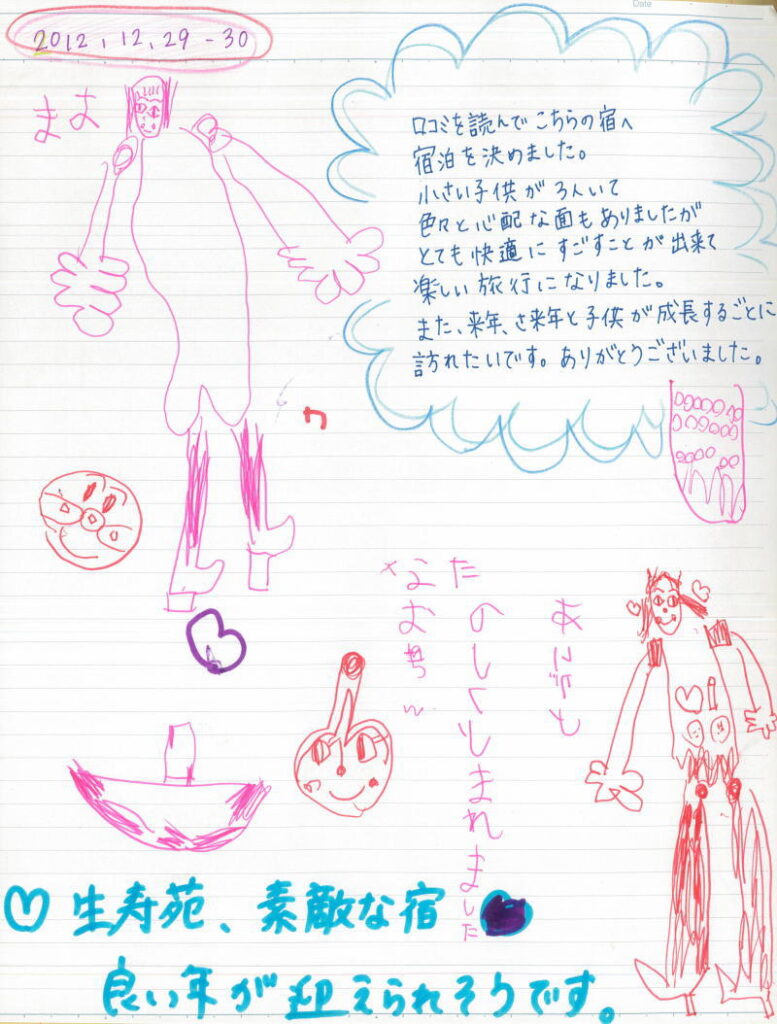 Date
2012, 12, 29 - 30
まお
口コミを読んで こちらの宿へ
宿泊を決めました。
小さい子供が 3人いて
色々と心配な面もありましたが
とても快適に すごすことが出来て
楽しい旅行になりました。
また、来年、さ来年と子供が成長するごとに
訪れたいです。ありがとうございました。
たのしくしまれました
生寿苑、素敵な宿
良い年が迎えられそうです。